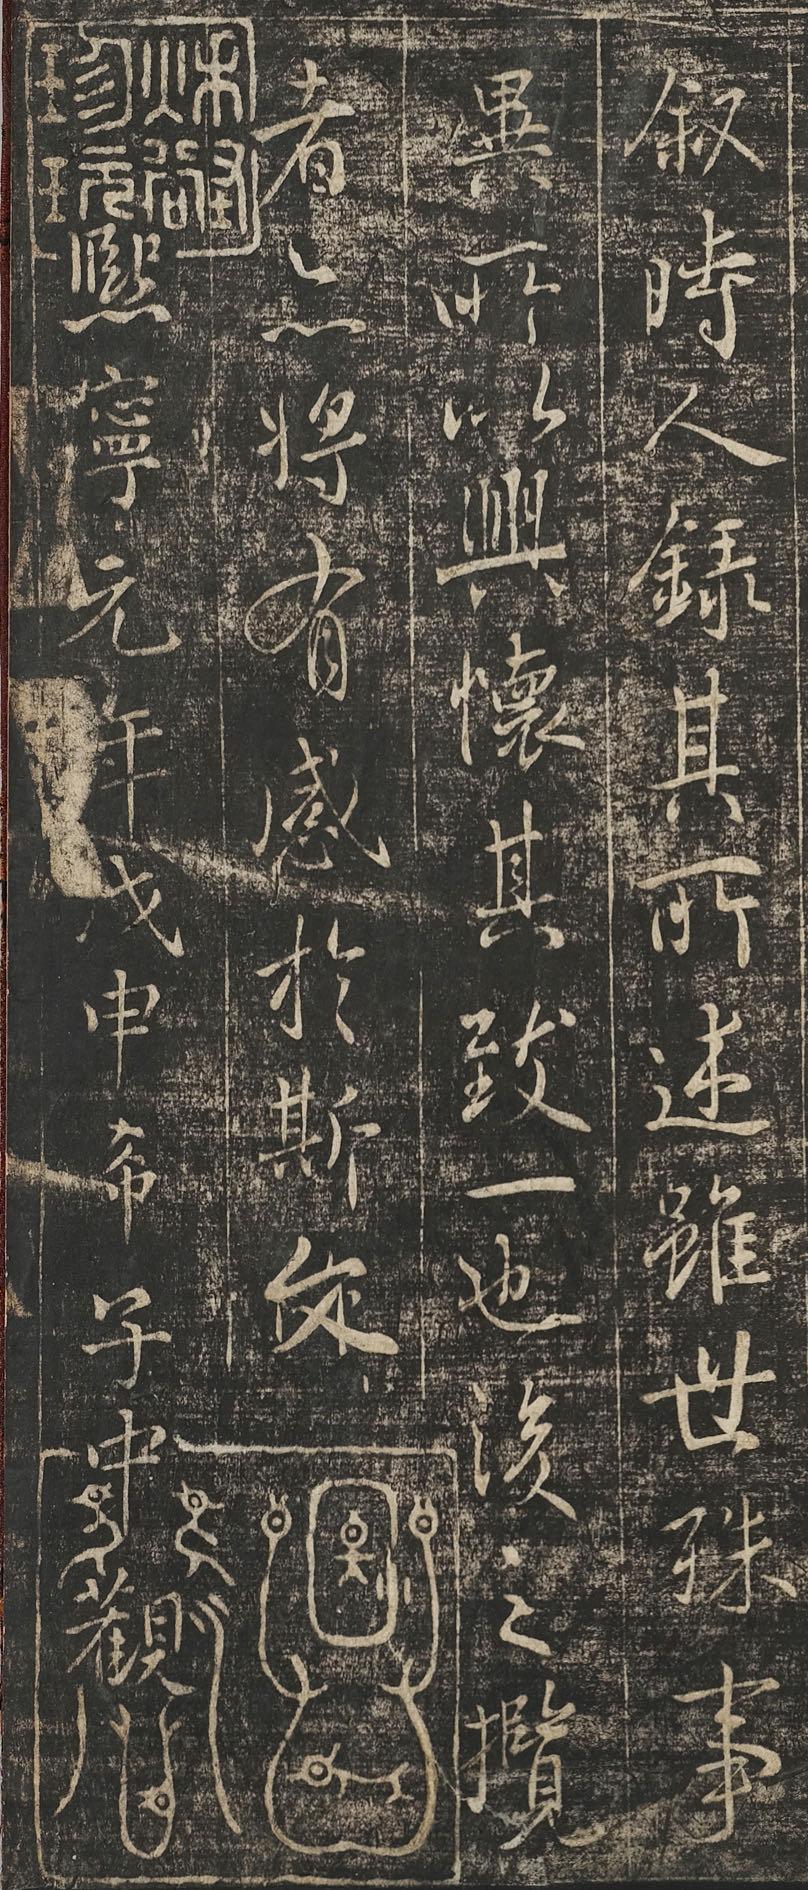 叙時人錄其所述雖世殊事
異所以興懷其致一也後之攬
者亦將有感於斯文
秋壑珍玩
熙寧元年戊申希子中觀